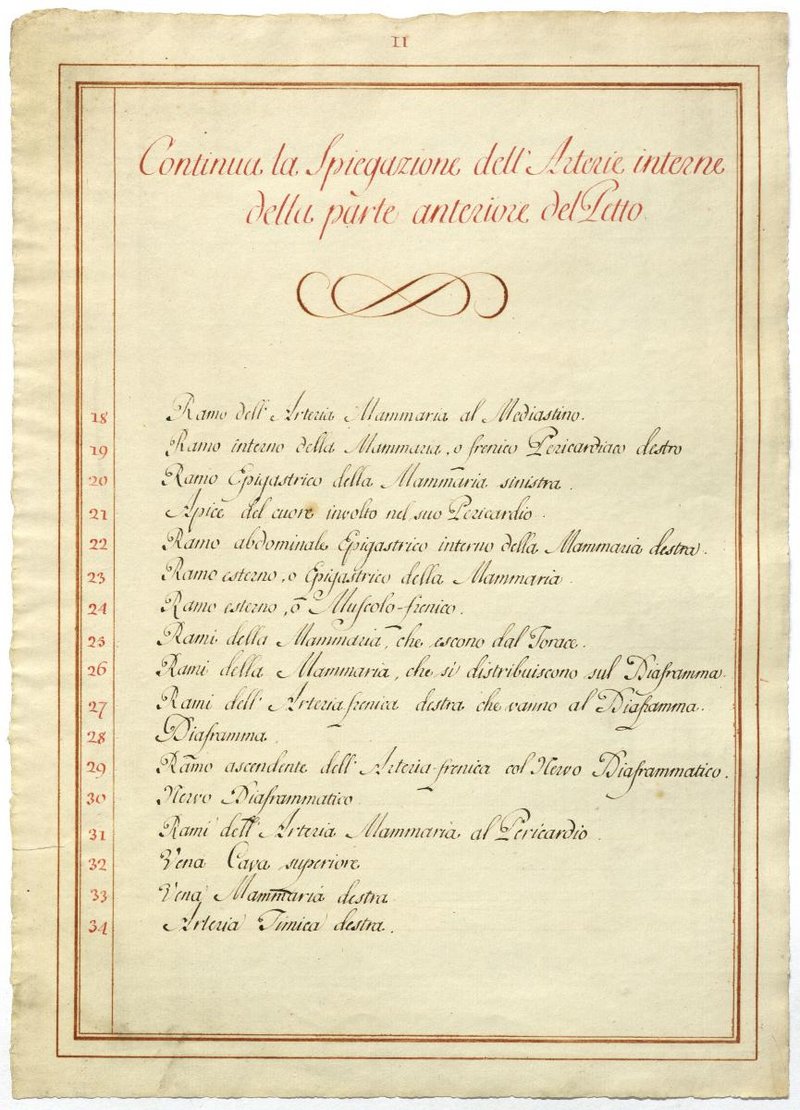 II
Continua la Spiegazione dell' Arterie interne
della parte anteriore del Petto.
18 Ramo dell' Arteria Mammaria al Mediastino.
19 Ramo interno della Mammaria, o frenico Pericardiaco destro
20 Ramo Epigastrico della Mammaria sinistra.
21 Apice del cuore involto nel suo Pericardio.
22 Ramo abdominale Epigastrico interno della Mammaria destra.
23 Ramo esterno, o Epigastrico della Mammaria.
24 Ramo esterno, o Muscolo-frenico.
25 Rami della Mammaria, che escono dal Torace.
26 Rami della Mammaria, che si distribuiscono sul Diaframma.
27 Rami dell' Arteria frenica destra che vanno al Diaframma.
28 Diaframma.
29 Ramo ascendente dell' Arteria-frenica col Nervo Diaframmatico.
30 Nervo Diaframmatico.
31 Rami dell' Arteria Mammaria al Pericardio.
32 Vena Cava superiore
33 Vena Mammaria destra
34 Arteria Timica destra.